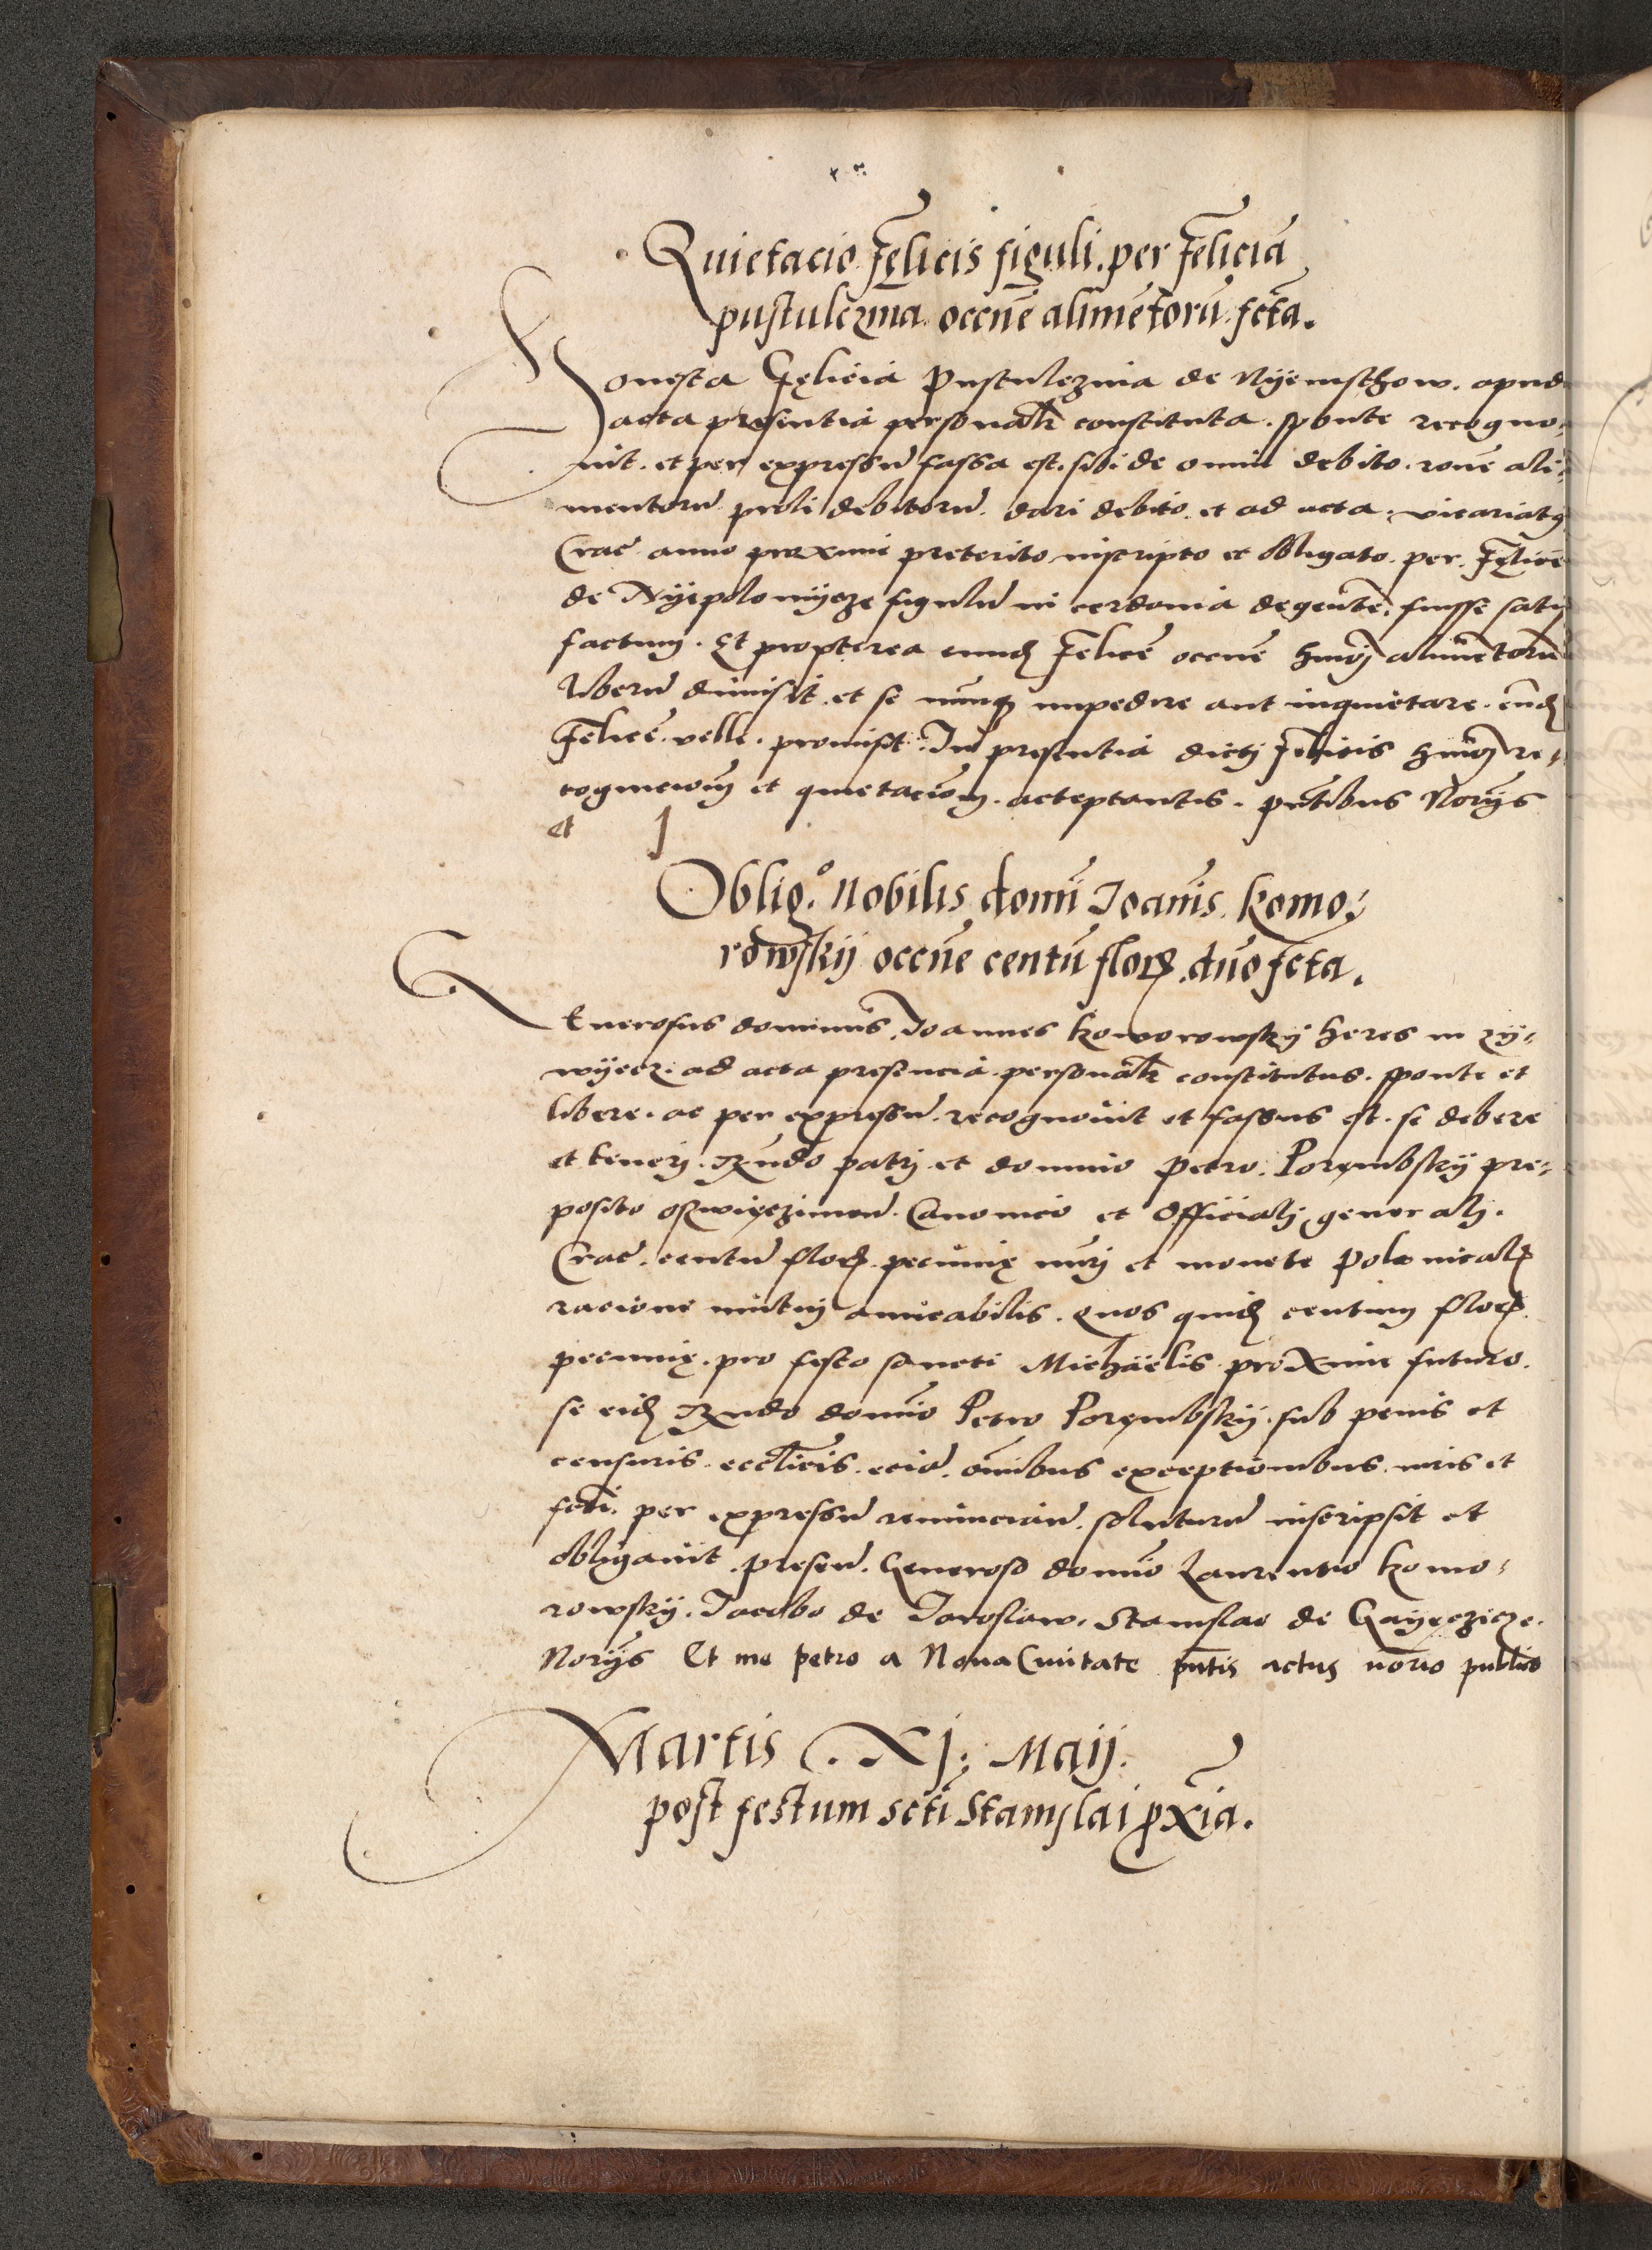 Quietacio Felicis figuli per Feliciā
pustulczina occne alimētorū fcta.
Honesta Felicia Pustulczina de Nyemsthow. apud
acta presentia personalr constituta. sponte recogno-
uit. et per expressū fassa est. sibi de omni debito. rone ali-
mentorū proli debitorū. dari debito. et ad acta vicariatus
Crac. anno proxime preterito inscripto et obligato. per. Felicē
de Nyepolomycze figulū in cerdonia degentē. fuisse satis
factum. Et propterea eundē Felicē occne hmōi alimētorū
liberū dimisit. et se nunq impedire aut inquietare. eundē
Felicē. velle. promisit. In presentia dicti Felicis hmōi re-
cognicionem et quietacionem. acceptantis. pntibus Norijs
et
Oblig.º nobilis domi Joanis. komo-
rowskij occne centū flor. duo fcta.
Generosus dominus. Joannes komorowskij heres in zy-
wyecz. ad acta presencia. personalr constitutus. sponte et
libere. ac per expressū. recognouit et fassus est. se debere
et teneri. Rndo patri et domino Petro. Porembskij pre-
posito oszwieczimen. Canonico et Officiali generali.
Crac. centū flor. pecunię nūri et monete Polonicalis
racione mutui amicabilis. quos quidē centum flor.
pecunię. pro festo sancti Michaëlis proxime futuro.
se eidē Rndo domino Petro Porembskij. sub penis et
censuris. ecclicis. eciā. omnibus exceptionibus. iuris et
fcti. per expressū renuncian. soluturū inscripsit et
obligauit. presen. Generoso domino Laurentio komo-
rowskij. Jacobo de Jaroslaw. Stanislao de
Norijs Et me petro a Noua Ciuitate pntis actus norio publico
Martis. XI. Maij.
post festum scti Stanislai pxia.